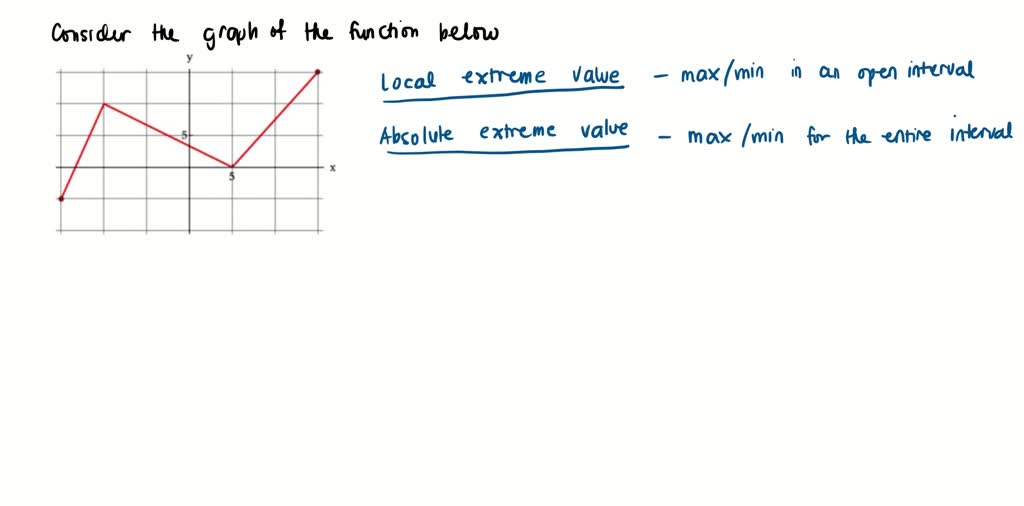 Consider the graph of the function below
y
Local extreme value - max/min in an open interval
5
Absolute extreme value - max/min for the entire interval
x
5